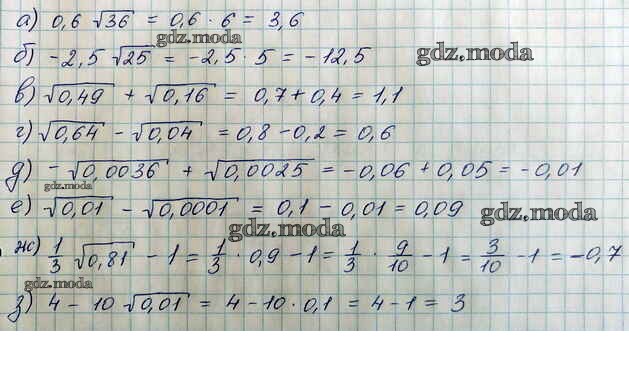 а) 0,6 √36 = 0,6 · 6 = 3,6
gdz.moda
б) -2,5 √25 = -2,5 · 5 = -12,5
gdz.moda
в) √0,49 + √0,16 = 0,7 + 0,4 = 1,1
г) √0,64 - √0,04 = 0,8 - 0,2 = 0,6
д) -√0,0036 + √0,0025 = -0,06 + 0,05 = -0,01
gdz.moda
е) √0,01 - √0,0001 = 0,1 - 0,01 = 0,09
gdz.moda
gdz.moda
ж) 1/3 √0,81 - 1 = 1/3 · 0,9 - 1 = 1/3 · 9/10 - 1 = 3/10 - 1 = -0,7
gdz.moda
з) 4 - 10 √0,01 = 4 - 10 · 0,1 = 4 - 1 = 3